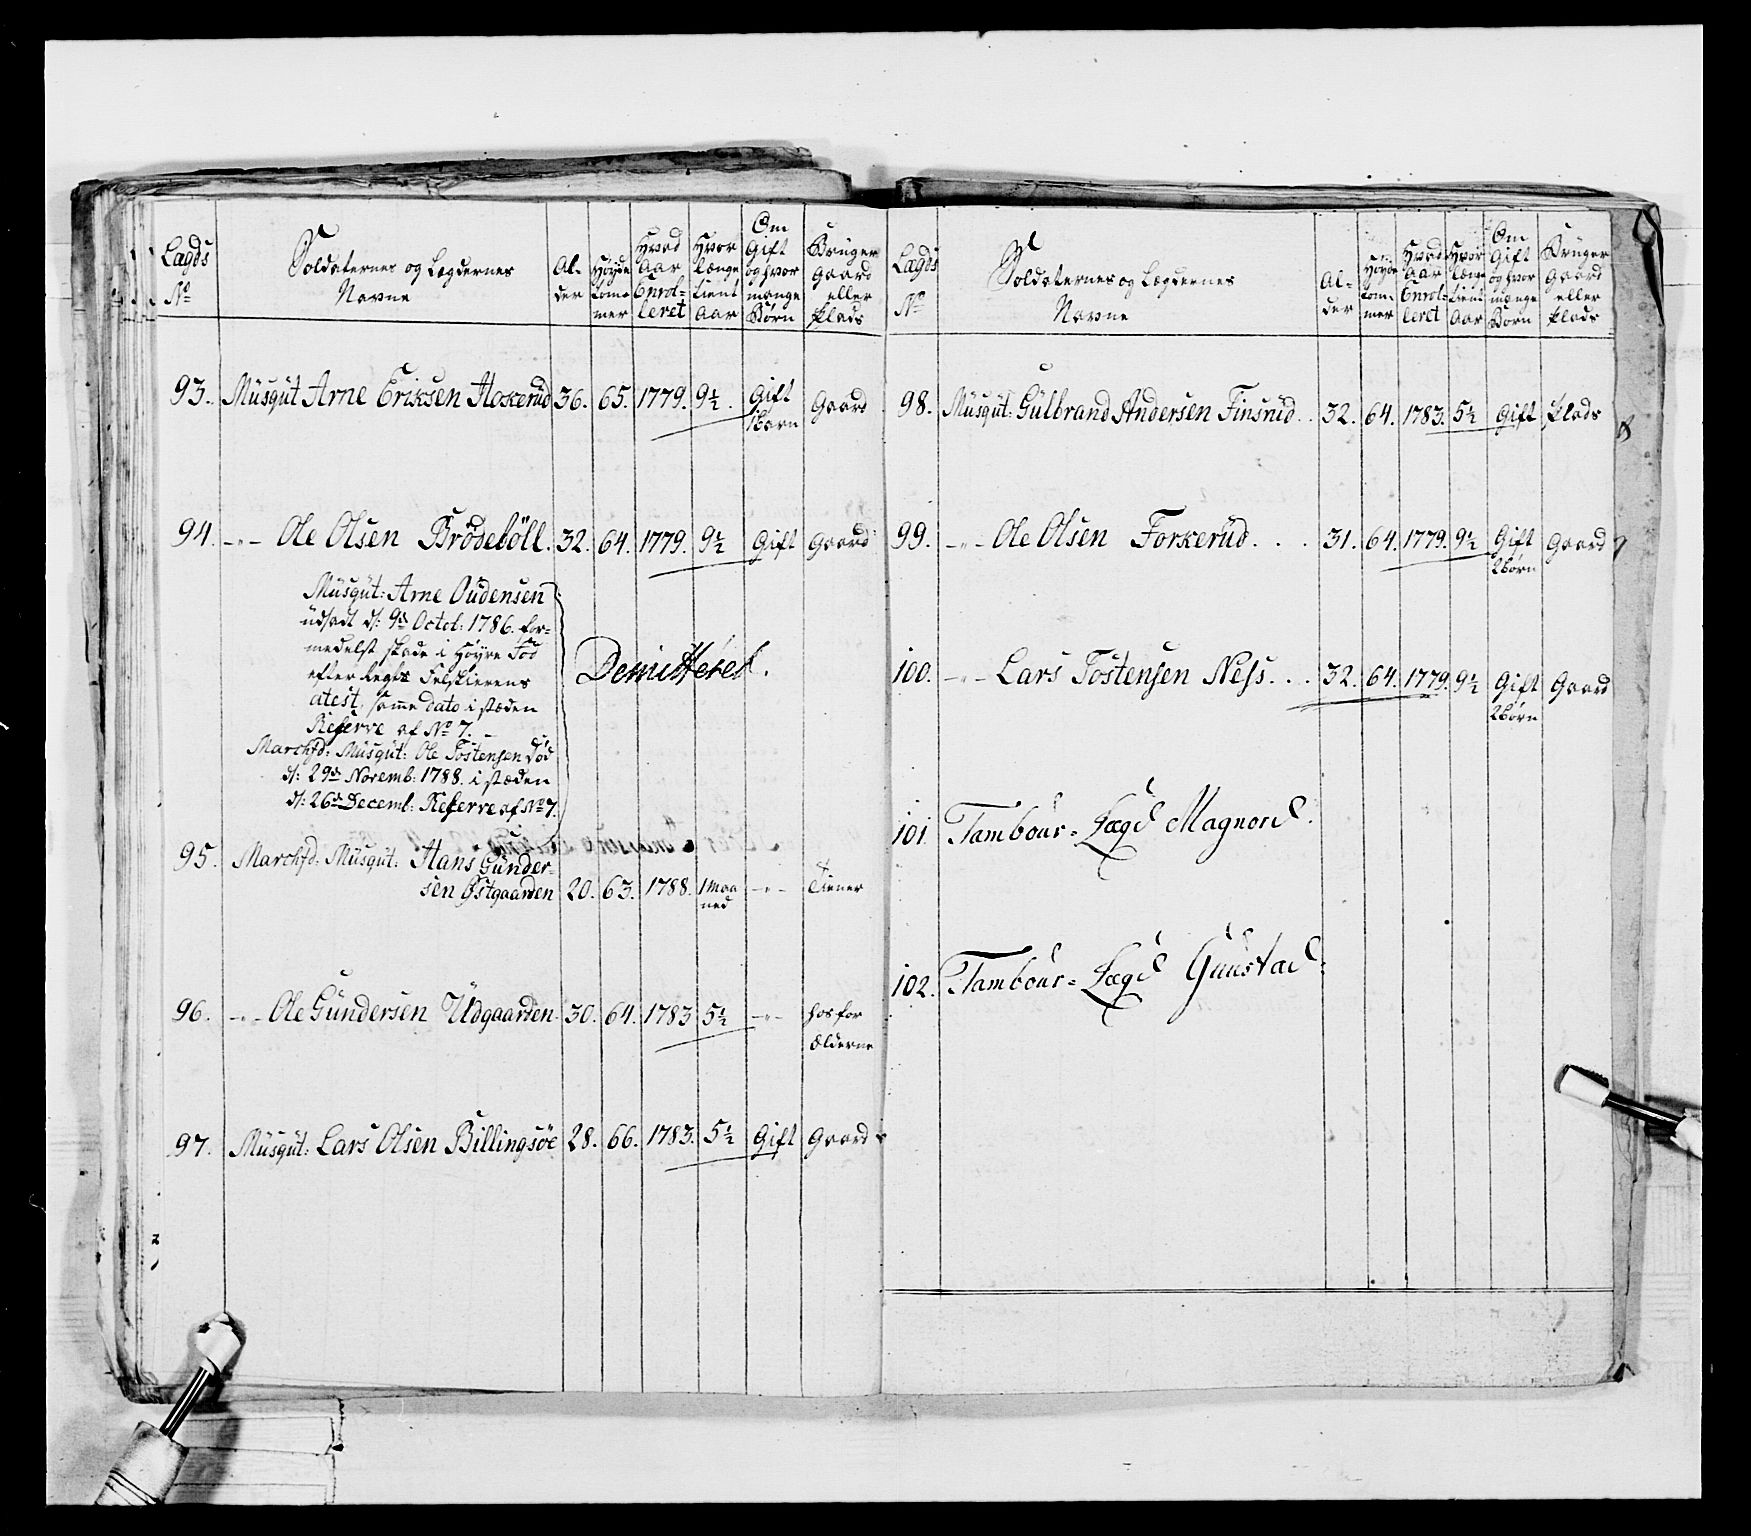 Lægds No
Soldaternes og Lægdernes Navne
Alder
Høyde tommer
Hvad Aar Enrolleret
Hvor længe tient Aar
Om Gift og hvor mange Børn
Bruger Gaard eller Plads
93. Musqüt Arne Eriksen Hokerüd 36. 65. 1779. 9½. Gift 1 barn Gaard
94. -"- Ole Olsen Brödeböll. 32. 64. 1779. 9½ Gift Gaard
Müsqüt: Arne Oudensen
üdsadt d: 9de Octob: 1786. for=
medelst skade i Høyre Fod
efter Regts Feldskierens
atest, samme dato i stæden
Reserve af No 7.
Marchfd: Müsqüt: Ole Tostensen död
d: 29de Novemb: 1788. i stæden
d: 26de Decemb: Reserve af No 7.
Demitteret.
95. Marchfd: Müsqüt: Hans Günder=
sen Østgaarden 20. 63. 1788. 1 Maaned -"- Tiener
96. -"- Ole Gündersen Üdgaarden 30. 64. 1783 5½ -"- hos for Ælderne
97. Müsqüt: Lars Olsen Billingsöe 28. 66. 1783. 5½ Gift Gaard
Lægds No
Soldaternes og Lægdernes Navne
Alder
Høyde tommer
Hvad Aar Enrolleret
Hvor længe tient Aar
Om Gift og hvor mange Børn
Bruger Gaard eller Plads
98. Müsqüt: Gülbrand Andersen Finsrüd.. 32. 64. 1783. 5½ Gift Plads
99. -"- Ole Olsen Forkerüd... 31. 64. 1779. 9½ Gift 2 börn Gaard
100. -"- Lars Tostensen Ness... 32. 64. 1779. 9½ Gift 2 börn Gaard
101. Tambour= Lægd Magnord.
102. Tambour= Lægd Guustad: